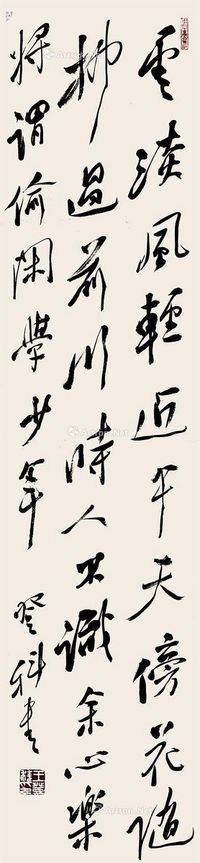 雲淡風輕近午天傍花隨
柳過前川時人不識余心樂
將謂偷閑學少年
登科書